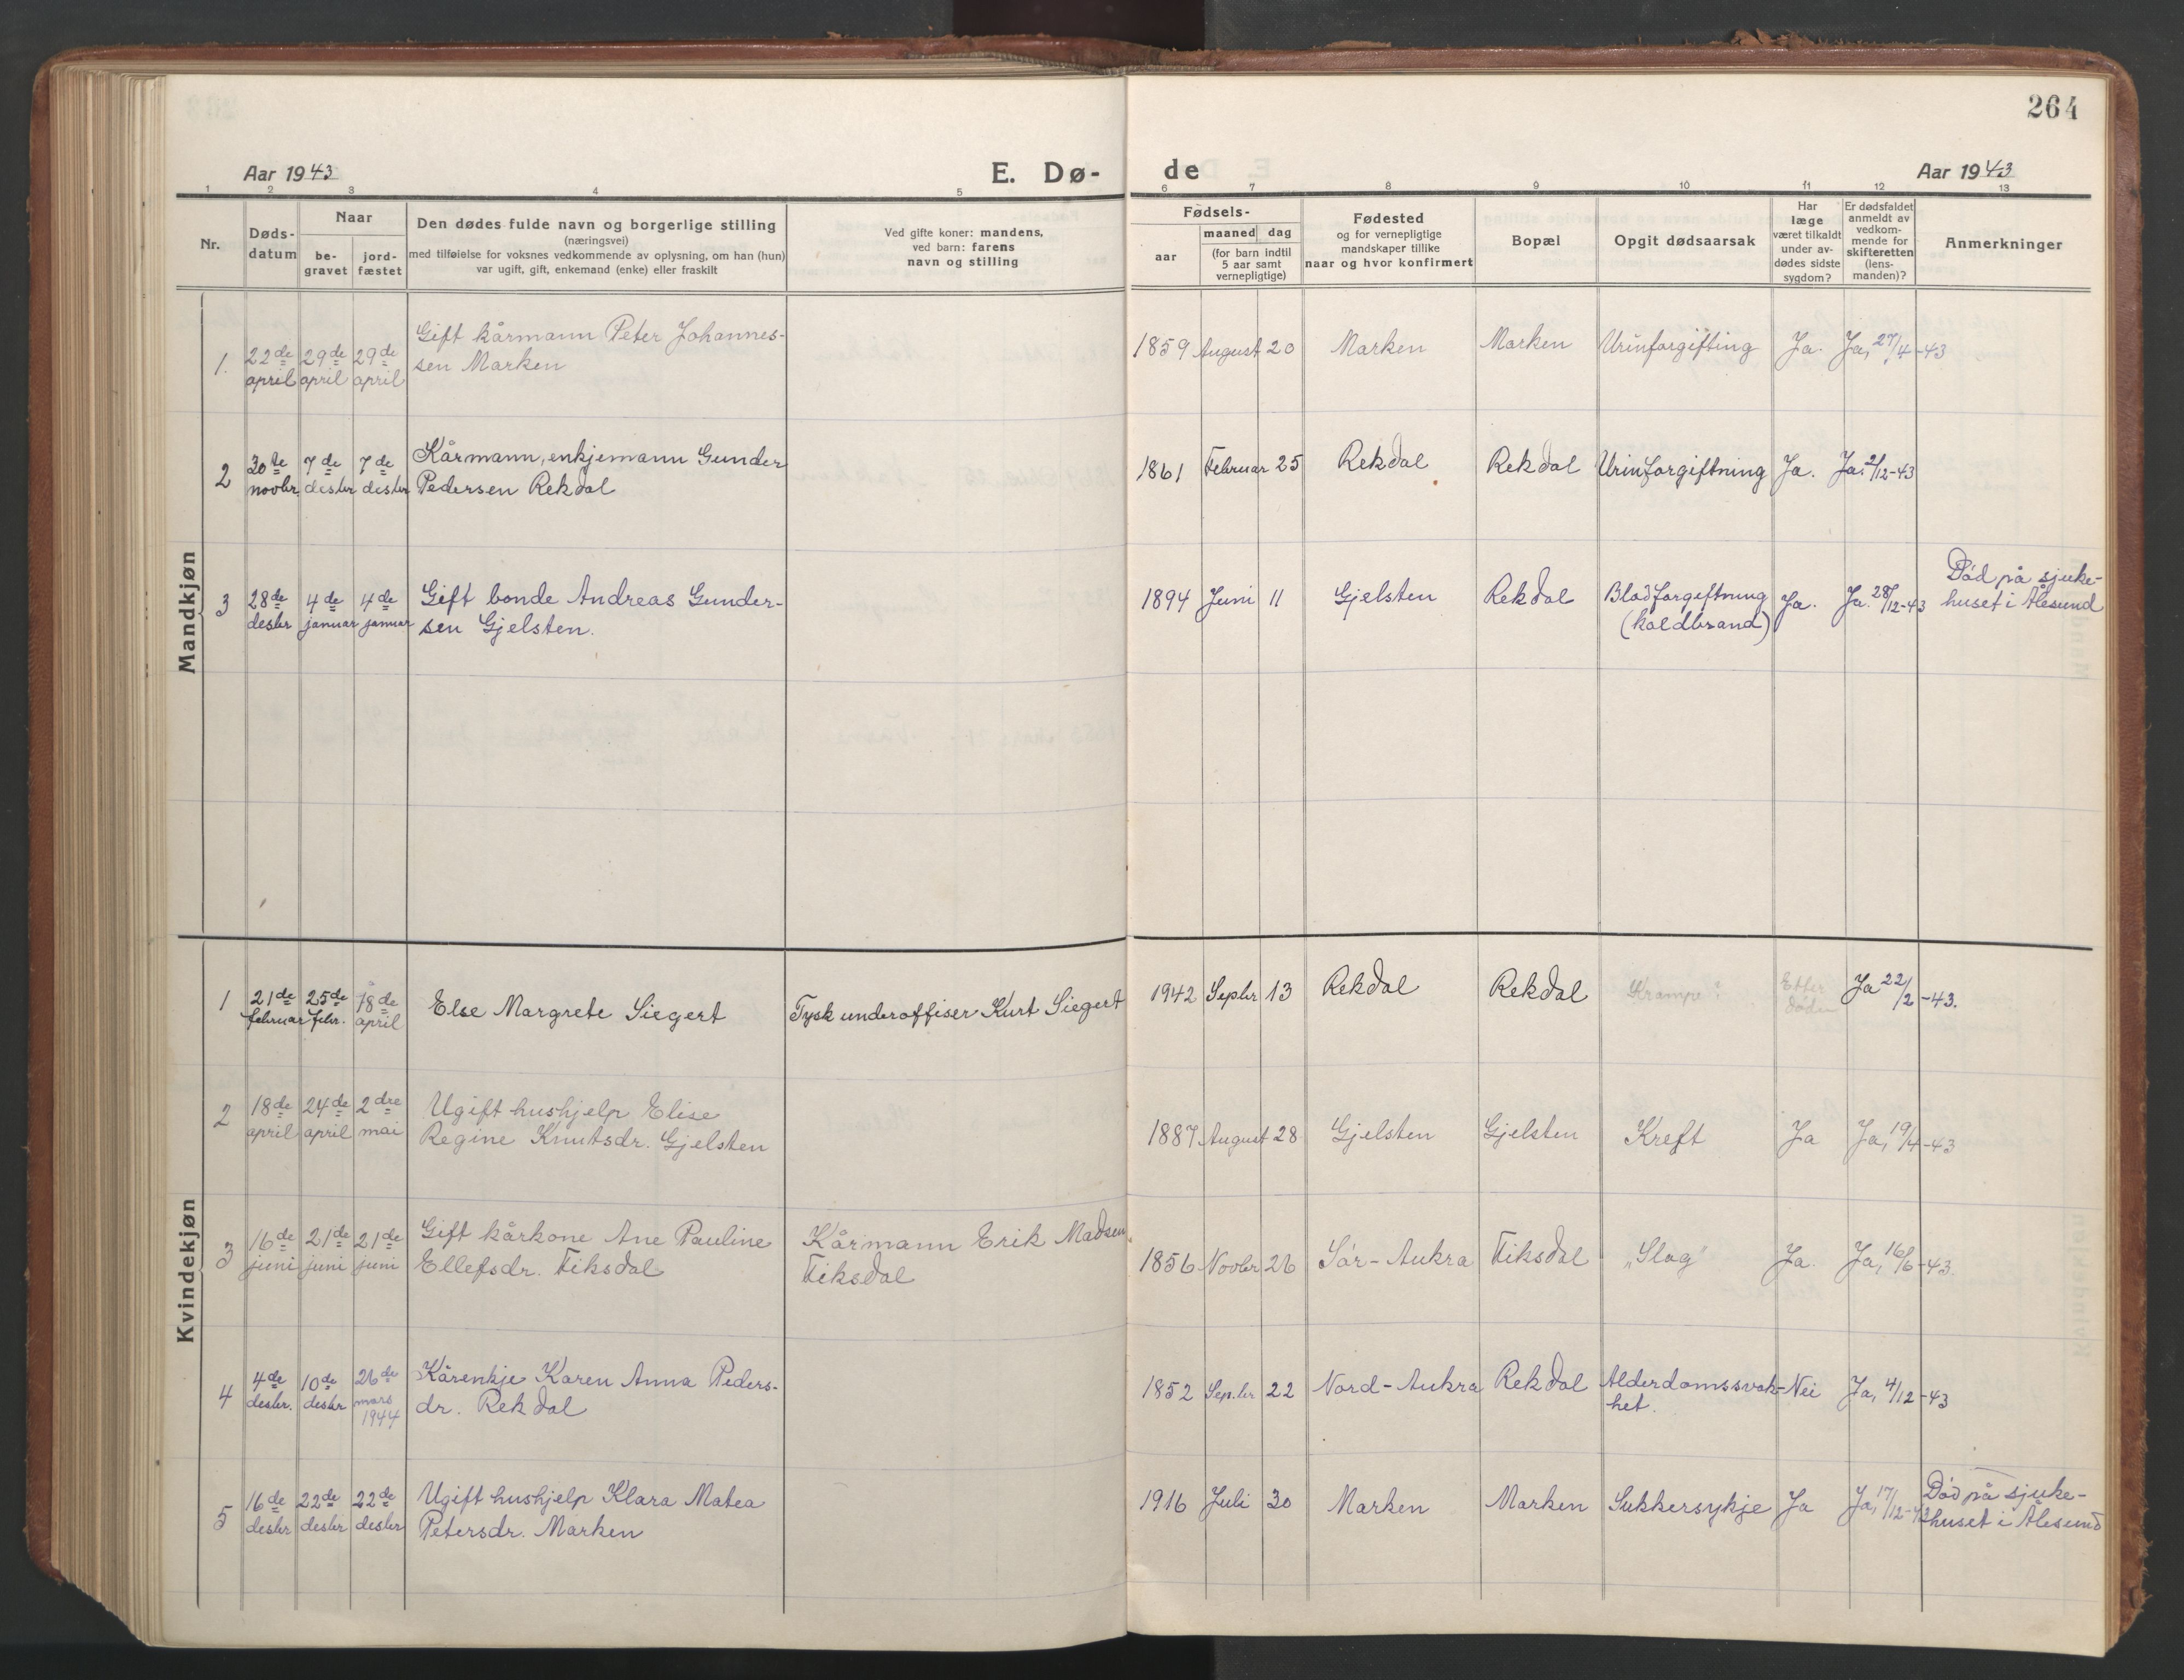 264
Aar 1943
E. Dø-
de
Aar 1943
1 2 3 4 5 6 7 8 9 10 11 12 13
Nr.
Døds-
datum
Naar
be-
gravet
jord-
fæstet
Den dødes fulde navn og borgerlige stilling
(næringsvei)
med tilføielse for voksnes vedkommende av oplysning, om han (hun)
var ugift, gift, enkemand (enke) eller fraskilt
Ved gifte koner: mandens,
ved barn: farens
navn og stilling
Fødsels-
aar
maaned dag
(for barn indtil
5 aar samt
vernepligtige)
Fødested
og for vernepligtige
mandskaper tillike
naar og hvor konfirmert
Bopæl
Opgit dødsaarsak
Har
læge
været tilkaldt
under av-
dødes sidste
sygdom?
Er dødsfaldet
anmeldt av
vedkom-
mende for
skifteretten
(lens-
manden)?
Anmerkninger
Mandkjøn
1. 22de april 29de april 29de april
Gift kårmann Peter Johannes-
sen Marken
1859 August 20 Marken Marken Urinforgifting Ja. Ja, 27/4-43
2 30te novbr. 7de desbr 7de desbr
Kårmann, enkjemann Gunder
Pedersen Rekdal
1861 Februar 25 Rekdal Rekdal Urinforgiftning Ja. Ja. 2/12-43
3 28de desbr 4de januar 4de januar
Gift bonde Andreas Gunder-
sen Gjelsten.
1894 Juni 11 Gjelsten Rekdal Blodforgiftning
(koldbrand)
Ja. Ja. 28/12-43
Død på sjuke-
huset i Ålesund
Kvindekjøn
1 21de februar 25de febr. 18de april
Else Margrete Siegert
Tysk underoffiser Kurt Siegert
1942 Sepbr 13 Rekdal Rekdal Krampe? Etter
døden
Ja 22/2-43.
2 18de april 24de april 2dre mai
Ugift hushjelp Elise
Regine Knutsdr. Gjelsten
1887 August 28 Gjelsten Gjelsten Kreft Ja Ja, 19/4-43
3 16de juni 21de juni 21de juni
Gift kårkone Ane Pauline
Ellefsdr. Fiksdal
Kårmann Erik Madsen
Fiksdal
1856 Novbr 26 Sør-Aukra Fiksdal „Slag" Ja. Ja, 16/6-43.
4 4de desbr. 10de desbr 26de mars 1944
Kårenkje Karen Anna Peders-
dr. Rekdal
1852 Sep.br 22 Nord-Aukra Rekdal Alderdomssvak-
het.
Nei Ja, 4/12-43
5 16de desbr 22de desbr 22de desbr
Ugift hushjelp Klara Matea
Petersdr. Marken
1916 Juli 30 Marken Marken Sukkersykje Ja Ja, 17/12-43
Død på sjuke-
huset i Ålesund